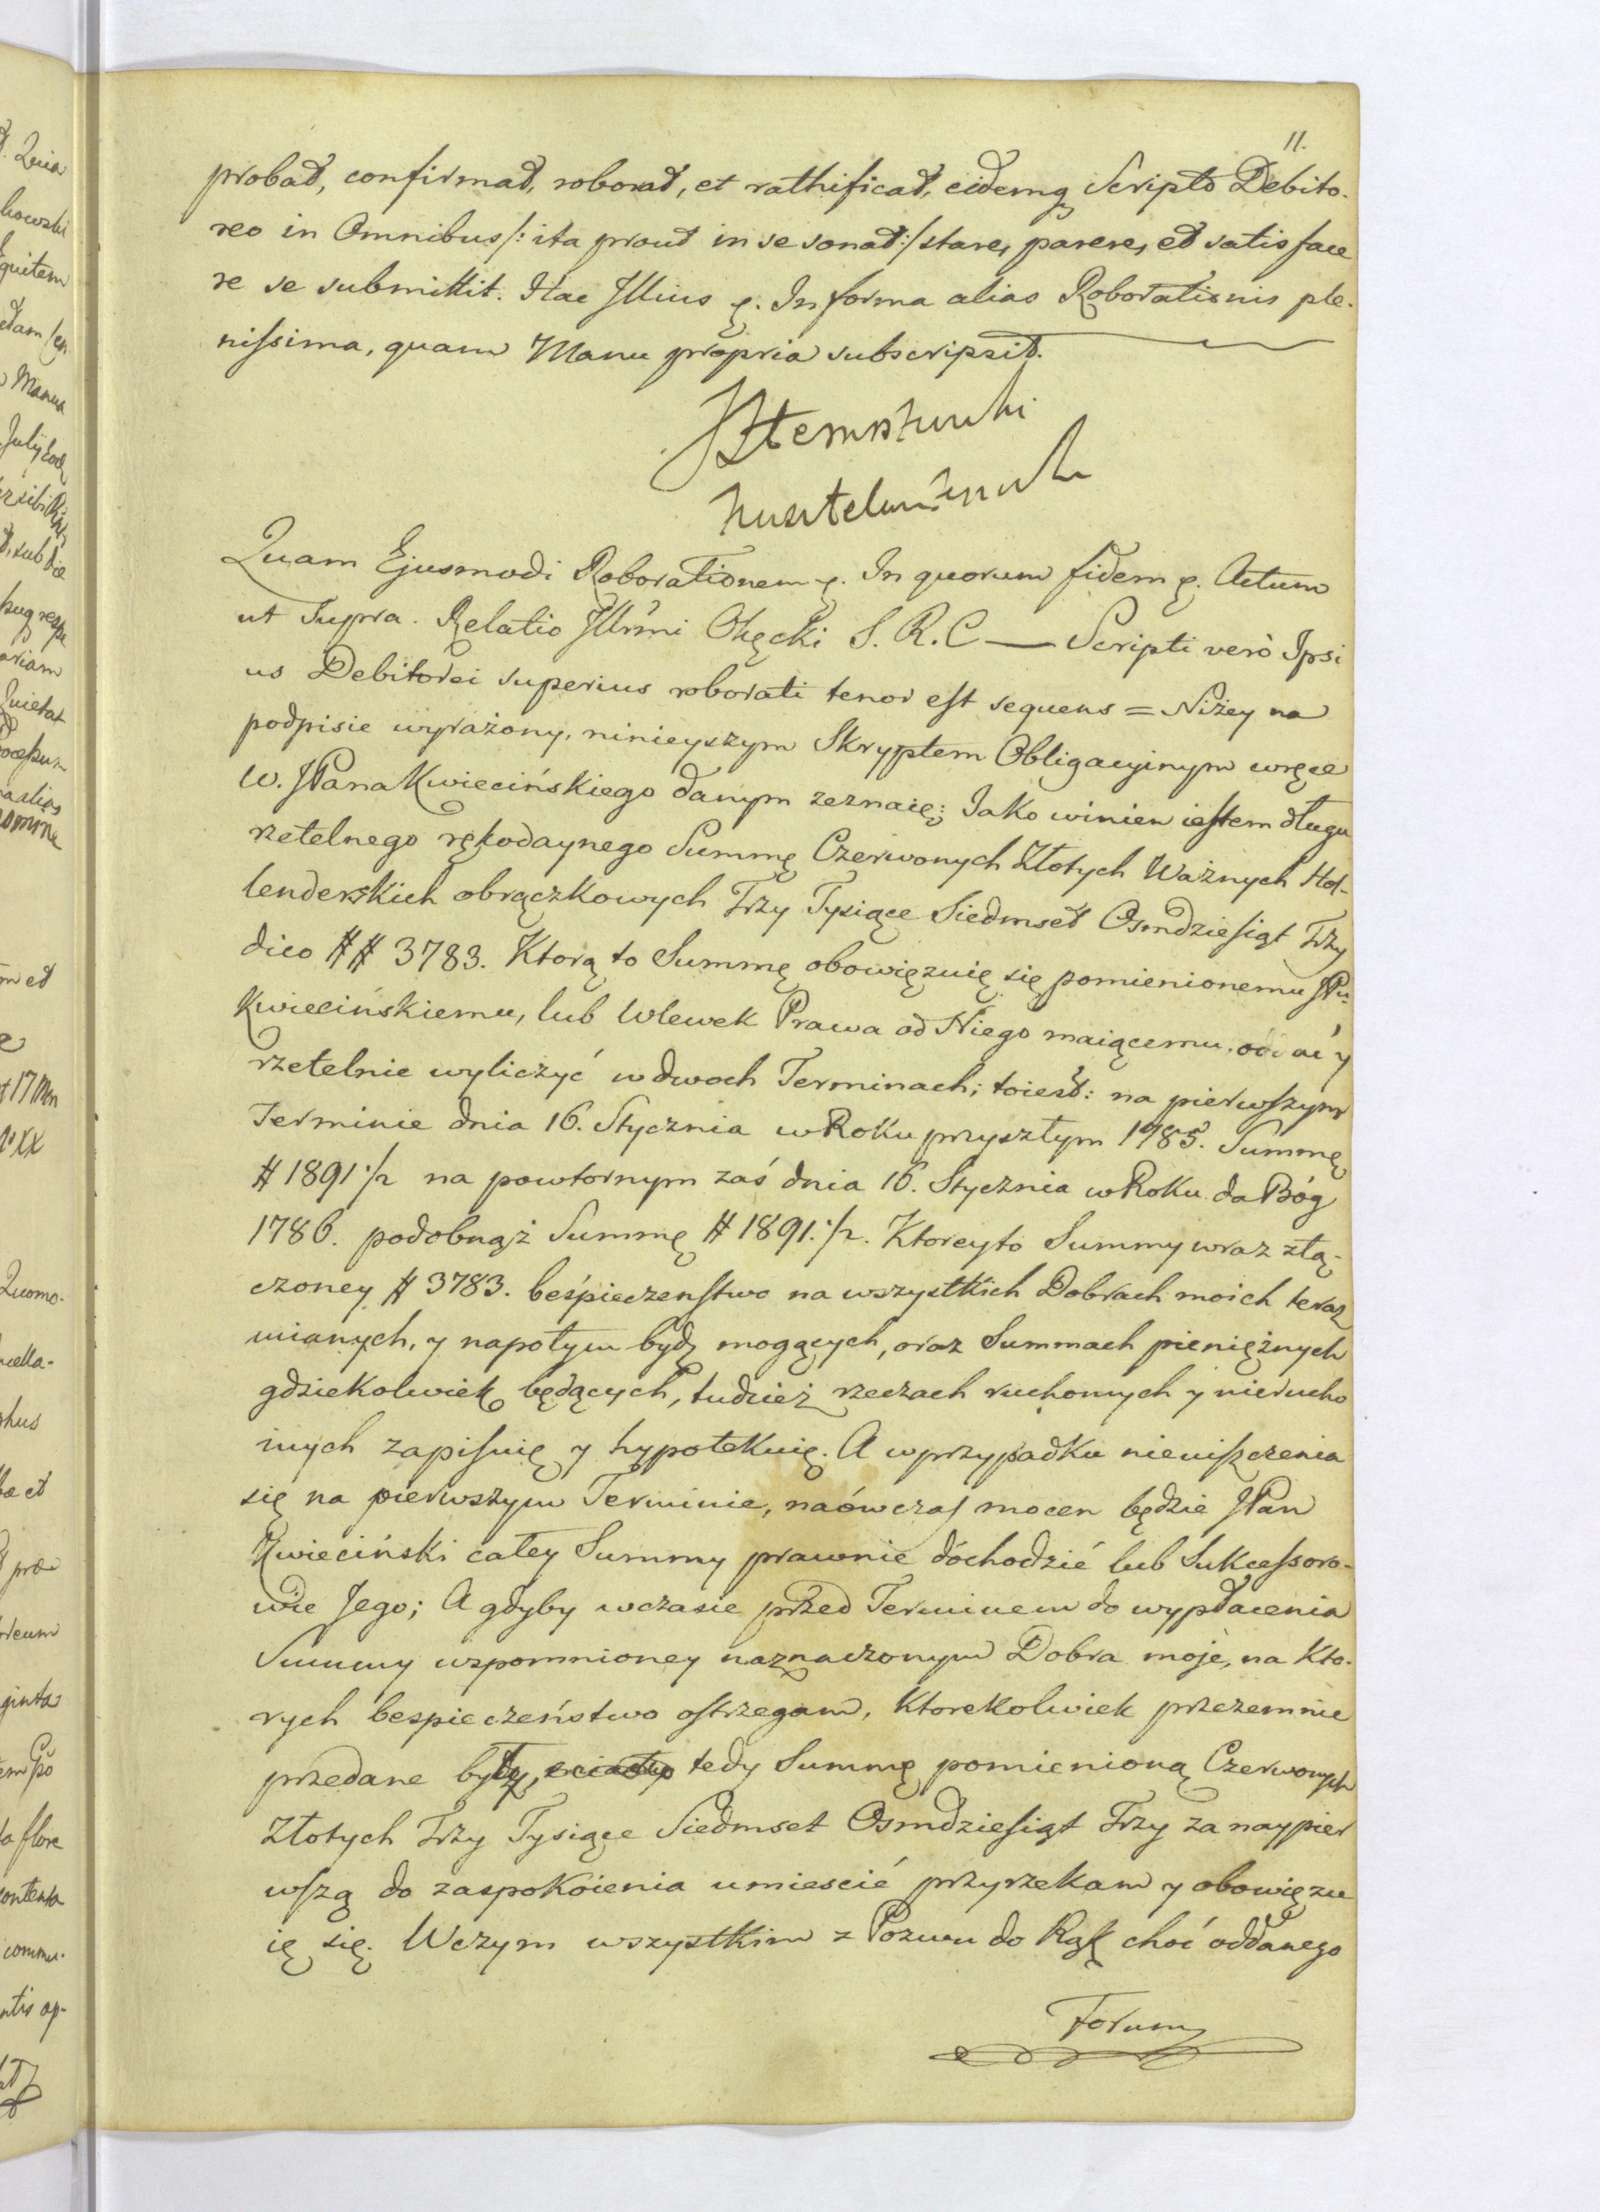 11.
probat, confirmat, roborat, et rathificat, eidemq Scripto Debito-
reo in Omnibus /: ita prout in se sonat :/ stare, parere, et satisface
re se submittit. Hac Illius ę. In forma alias Roborationis ple-
nissima, quam Manu propria subscripsit.
Quam Ejusmodi Roborationem ę. In quorum fidem ę. Actum
ut Supra. Relatio Illrmi Okęcki S. R. C — Scripti verò Ipsi
us Debitorei superius roborati tenor est sequens = Niżey na
podpisie wyrażony, ninieyszym Skryptem Obligacyinym w ręce
W. JPana Kwiecińskiego danym zeznaię; Jako winien iestem długu
rzetelnego rękodaynego Summę Czerwonych Złotych Ważnych Hol-
lenderskich obrączkowych Trzy Tysiące Siedmset Osmdziesiąt Trzy
dico ## 3783. Ktorą to Summę obowięzuię się pomienionemu JPu
Kwiecińskiemu, lub Wlewek Prawa od Niego maiącemu, oddać y
rzetelnie wyliczyć w dwoch Terminach; toiest: na pierwszym
Terminie dnia 16. Stycznia w Roku przyszłym 1785. Summę
# 1891 1/2 na powtornym zaś dnia 16. Stycznia w Roku da Bóg
1786. podobnąż Summę # 1891. 1/2. Ktorey to Summy wraz złą-
czoney # 3783. beśpieczenstwo na wszystkich Dobrach moich teraz
mianych, y napotym bydź mogących, oraz Summach pieniężnych
gdziekolwiek będących, tudzież rzeczach ruchomych y nierucho
mych zapisuię y hypotekuię. A w przypadku nieuiszczenia
się na pierwszym Terminie, naówczas mocen będzie JPan
Kwieciński całey Summy prawnie dóchodzić lub Sukcessoro-
wie Jego; A gdyby w czasie przed Terminem do wypłacenia
Summy wspomnioney naznaczonym Dobra moje, na Kto-
rych bespieczeństwo ostrzegam, Ktorekolwiek przezemnie
przedane były, tedy Summę pomienioną Czerwonych
Złotych Trzy Tysiące Siedmset Osmdziesiąt Trzy za naypier
wszą do zaspokoienia umiescić przyrzekam y obowięzu
ię się. W czym wszystkim z Pozwu do Rąk choć oddanego
Forum